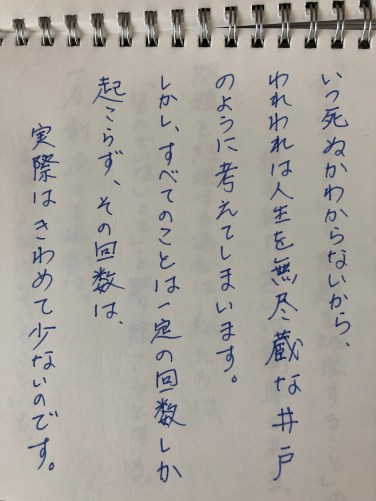 いつ死ぬかわからないから、
われわれは人生を無尽蔵な井戸
のように考えてしまいます。
しかし、すべてのことは一定の回数しか
起こらず、その回数は、
実際はきわめて少ないのです。